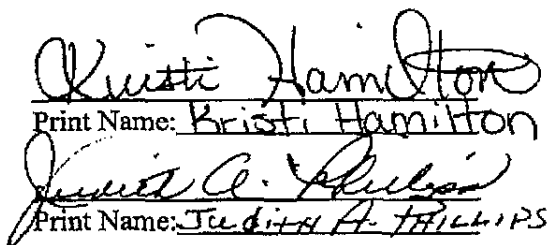 Kristi Hamilton
Print Name: Kristi Hamilton
Judith A. Phillips
Print Name: JUDITH A. PHILLIPS